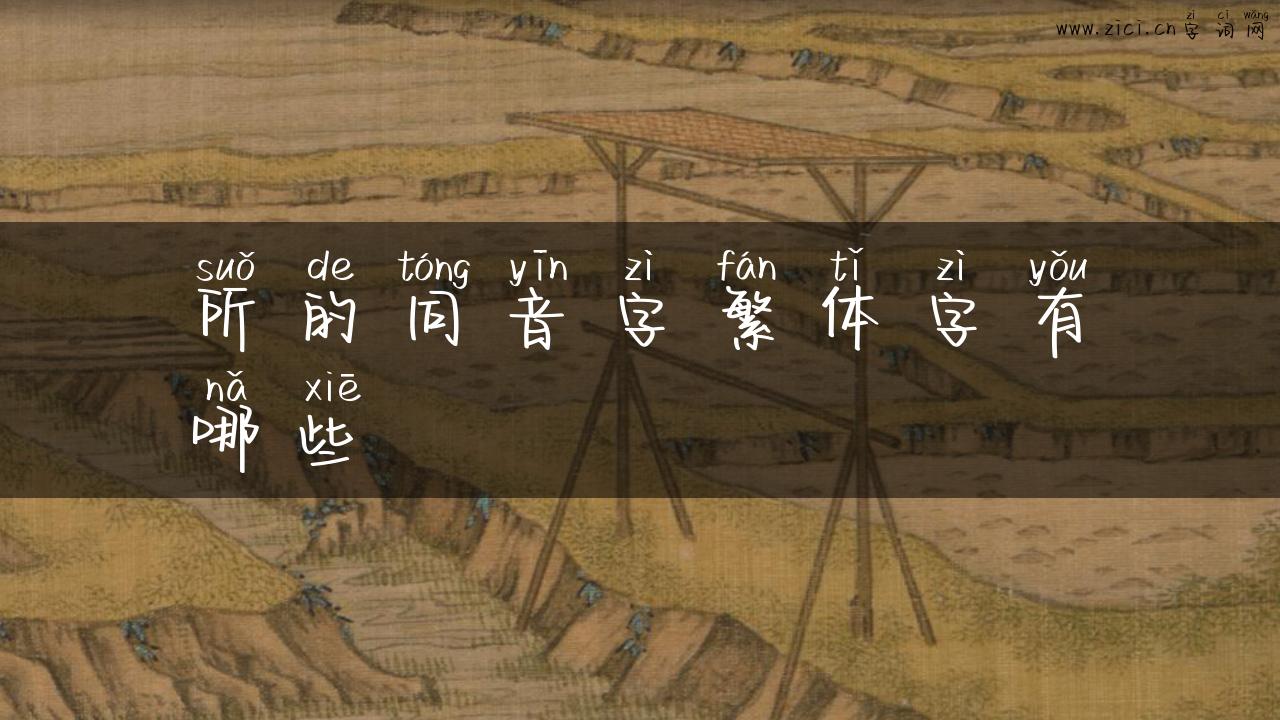 zì cí wǎng
www.zici.cn 字 词 网
suǒ de tóng yīn zì fán tǐ zì yǒu
所 的 同 音 字 繁 体 字 有
nǎ xiē
哪 些